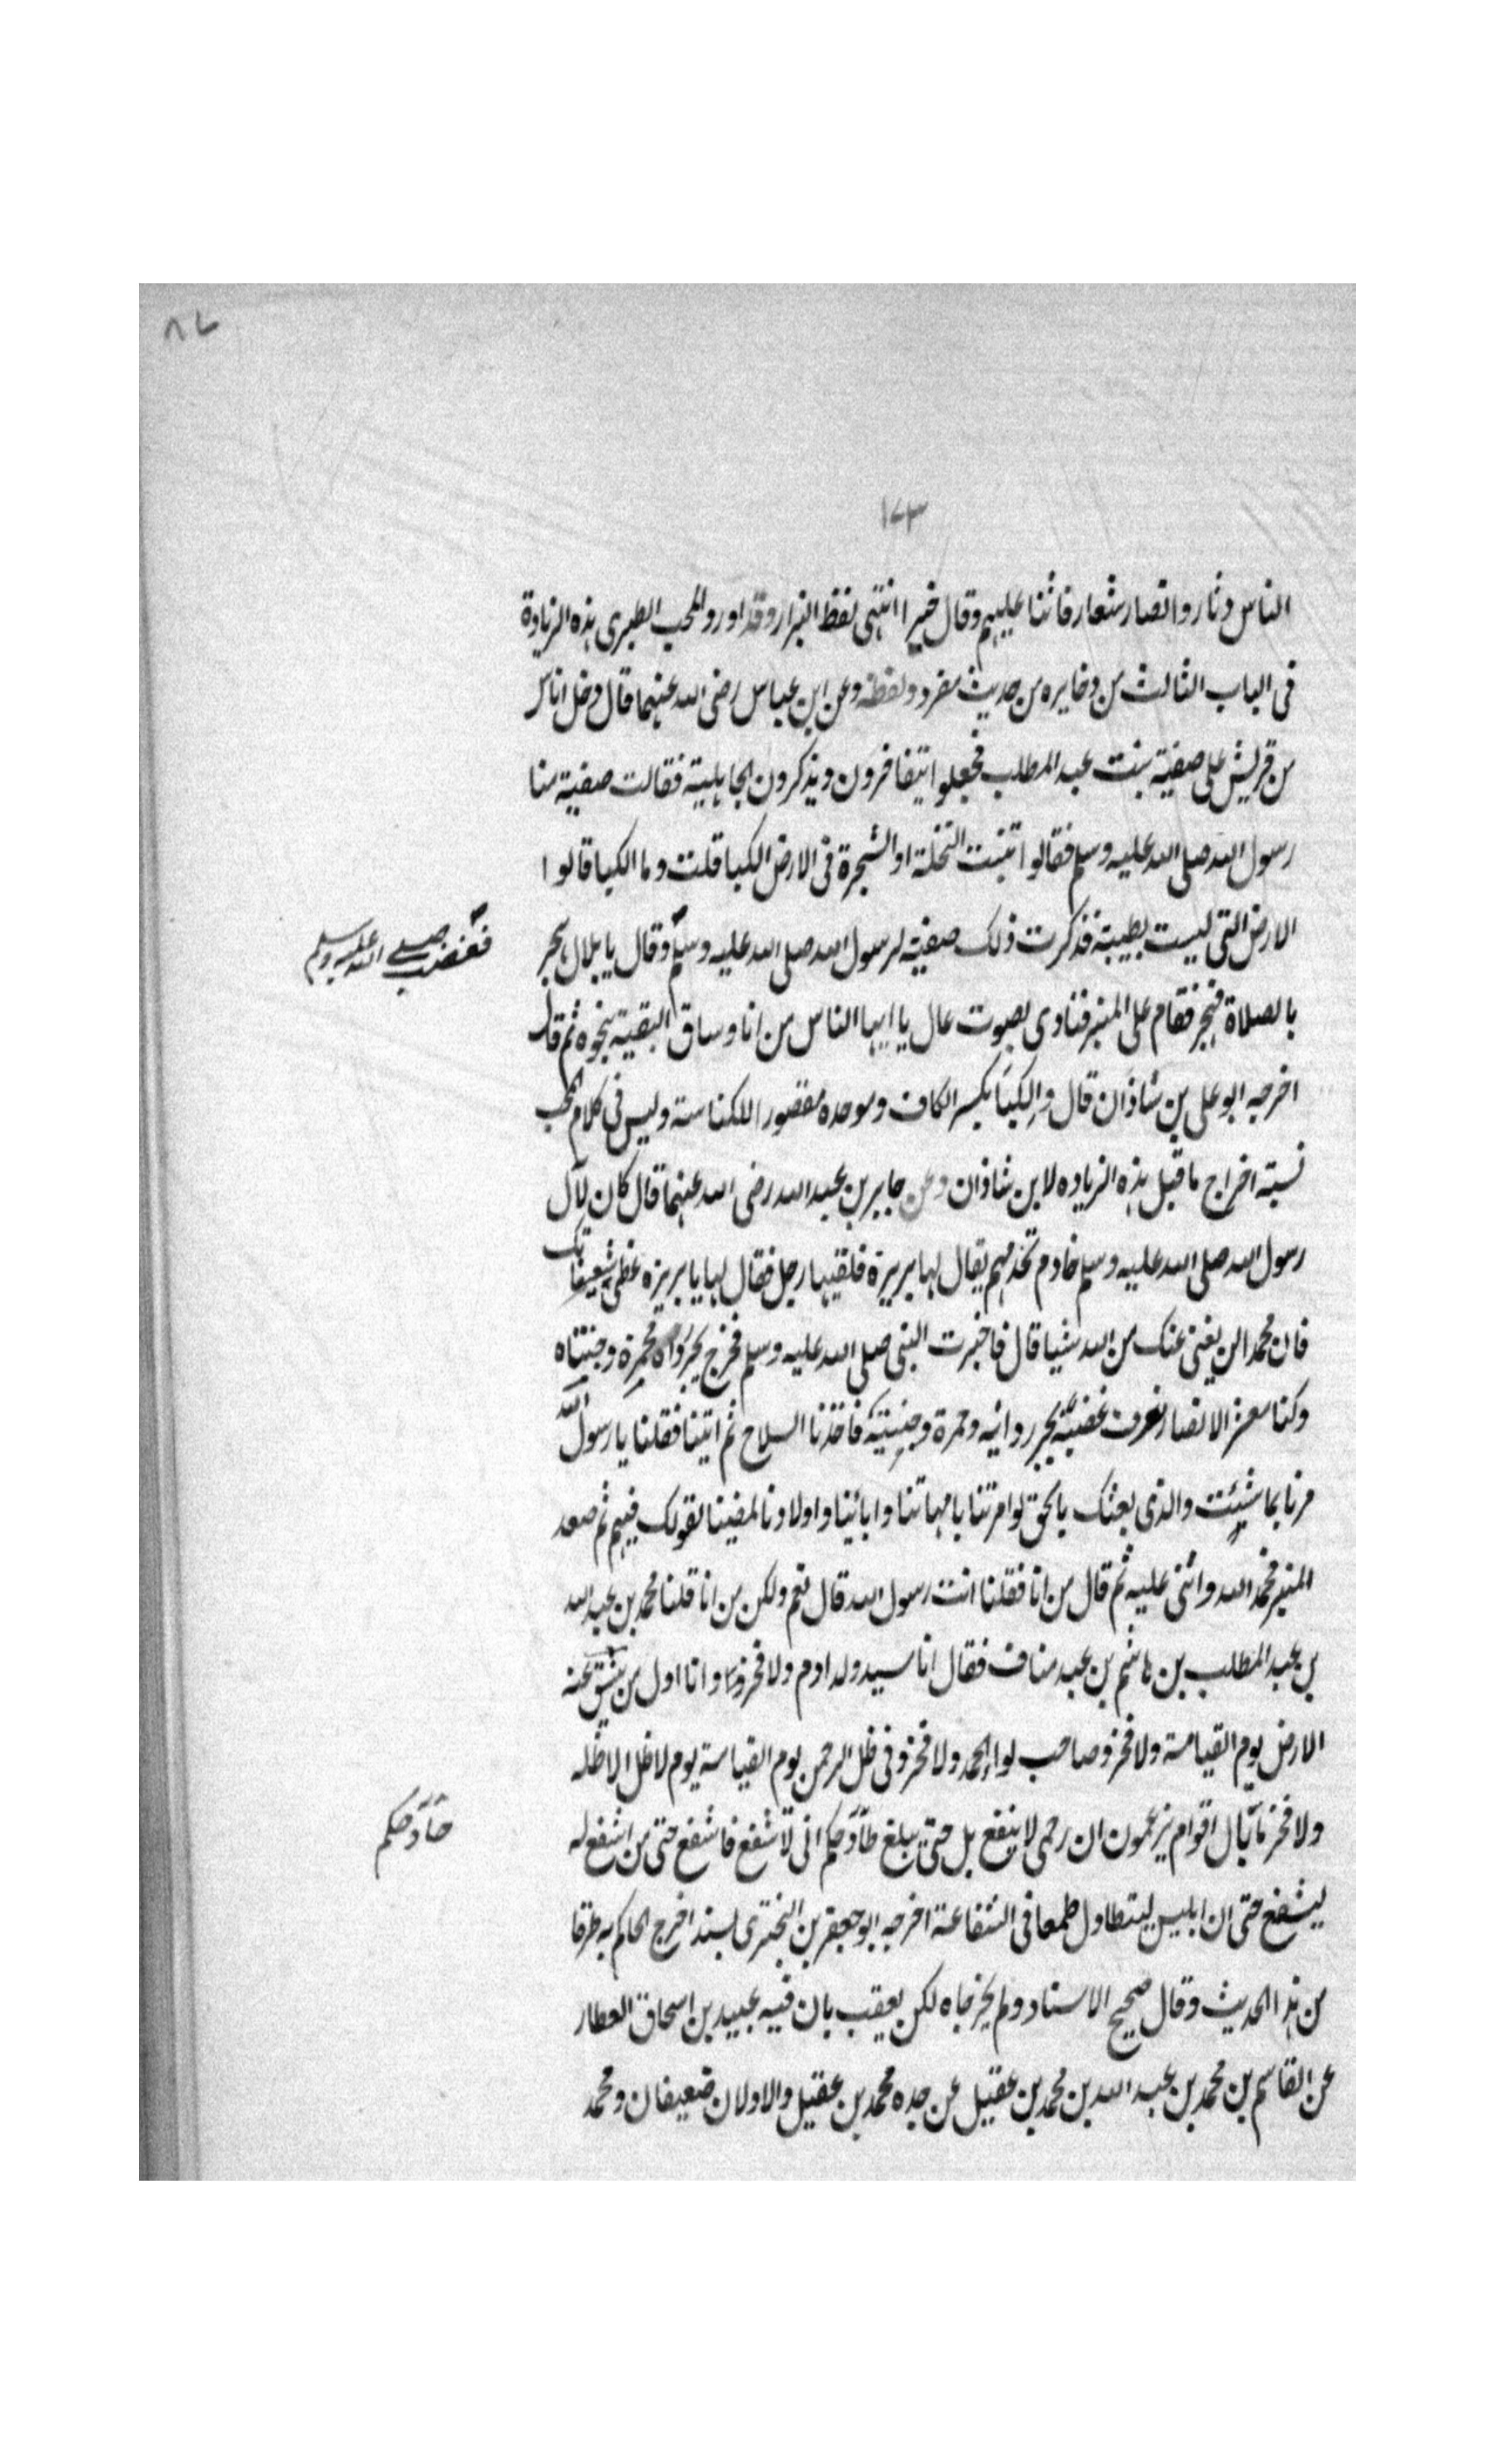 ٨٧
١٧٣
الناس دثار والانصار شعار فاثنا عليهم وقال خيرا انتهى لفظ البزار وقد اورد المحب الطبرى هذه الزيادة
فى الباب الثالث من ذخايره من حديث مفرد ولفظه وعن ابن عباس رضى الله عنهما قال دخل اناس
من قريش على صفية بنت عبد المطلب فجعلوا يتفاخرون ويذكرون الجاهلية فقالت صفية منا
رسول الله صلى الله عليه وسلم فقالوا تنبت النخلة او الشجرة فى الارض الكبا قلت وما الكبا قالوا
الارض التى ليست بطيبة فذكرت ذلك صفية لرسول الله صلى الله عليه وسلم وقال يا بلال هجر
فغضب صلى الله عليه وسلم
بالصلاة فهجر فقام على المنبر فنادى بصوت عال يا ايها الناس من انا وساق البقية بنحوه ثم قال
اخرجه ابو على بن شاذان قال والكبا بكسر الكاف وموحده مقصورا الكناسة وليس فى كلام المحب
نسبة اخراج ما قبل هذه الزياده لابن شاذان وعن جابر بن عبد الله رضى الله عنهما قال كان لآل
رسول الله صلى الله عليه وسلم خادم تخدمهم يقال لها بريرة فلقيها رجل فقال لها يا بريره غطى شعيفاتك
فان محمدا لن يغنى عنك من الله شيا قال فاخبرت النبى صلى الله عليه وسلم فخرج يجر رداه محمرة وجنتاه
وكنا معشر الانصار نعرف غضبه بجر ردائه وحمرة وجنتيه فاخذنا السلاح ثم اتينا فقلنا يا رسول الله
مرنا بما شئت والذى بعثك بالحق لو امرتنا بامهاتنا وابائينا واولادنا لمضينا لقولك فيهم ثم صعد
المنبر فحمد الله واثنى عليه ثم قال من انا فقلنا انت رسول الله قال نعم ولكن من انا قلنا محمد بن عبد الله
بن عبد المطلب بن هاشم بن عبد مناف فقال انا سيد ولد ادم ولا فخر وانا اول من ينشق عنه
الارض يوم القيامة ولا فخر وصاحب لواء الحمد ولا فخر وفى ظل الرحمن يوم القيامة يوم لا ظل الا ظله
ولا فخر ما بال اقوام يزعمون ان رحمى لا ينفع بل حتى يبلغ حآوحكم انى لاشفع فاشفع حتى من اشفع له
حآوحكم
ليشفع حتى ان ابليس ليتطاول طمعا فى الشفاعة اخرجه ابو جعفر بن البخترى بسند اخرج الحاكم به طرفا
من هذا الحديث وقال صحيح الاسناد ولم يخرجاه لكن يعقب بان فيه عبيد بن اسحاق العطار
عن القاسم بن محمد بن عبد الله بن محمد بن عقيل عن جده محمد بن عقيل والاولان ضعيفان ومحمد